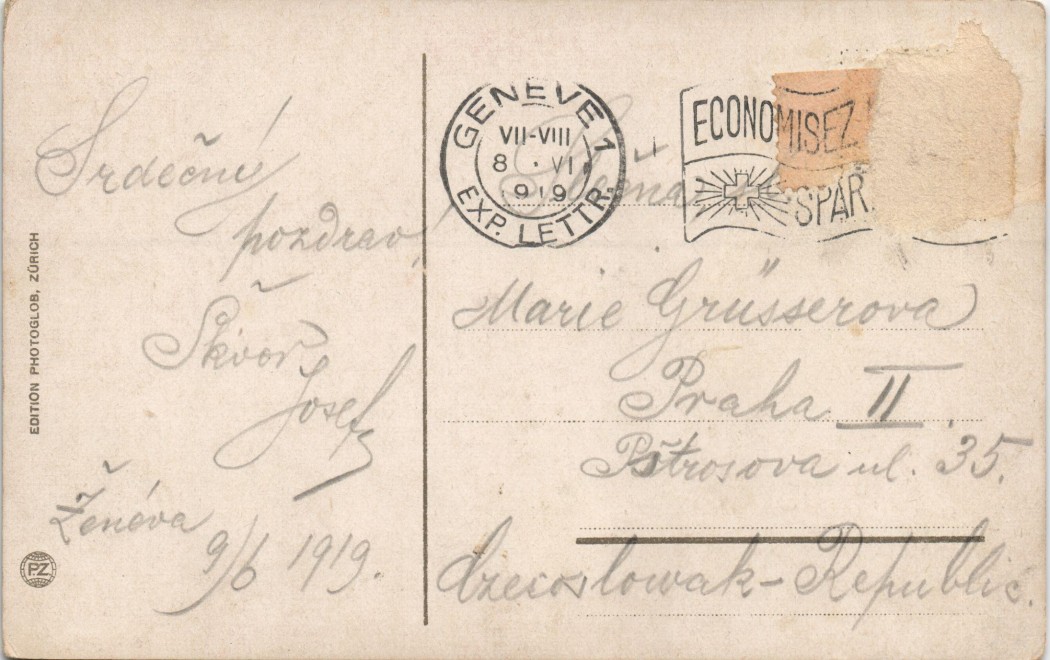 Srdečný
pozdrav,
Škvoř
Josef
Ženéva
9/6 1919.
EDITION PHOTOGLOB, ZÜRICH
P.Z.
GENÈVE 1
VII-VIII
8 · VI.
1919
EXP. LETTR.
ECONOMISEZ
SPAR
Marie Grüsserova
Praha II.
Pštrosova ul. 35.
Czecoslowak-Republic.